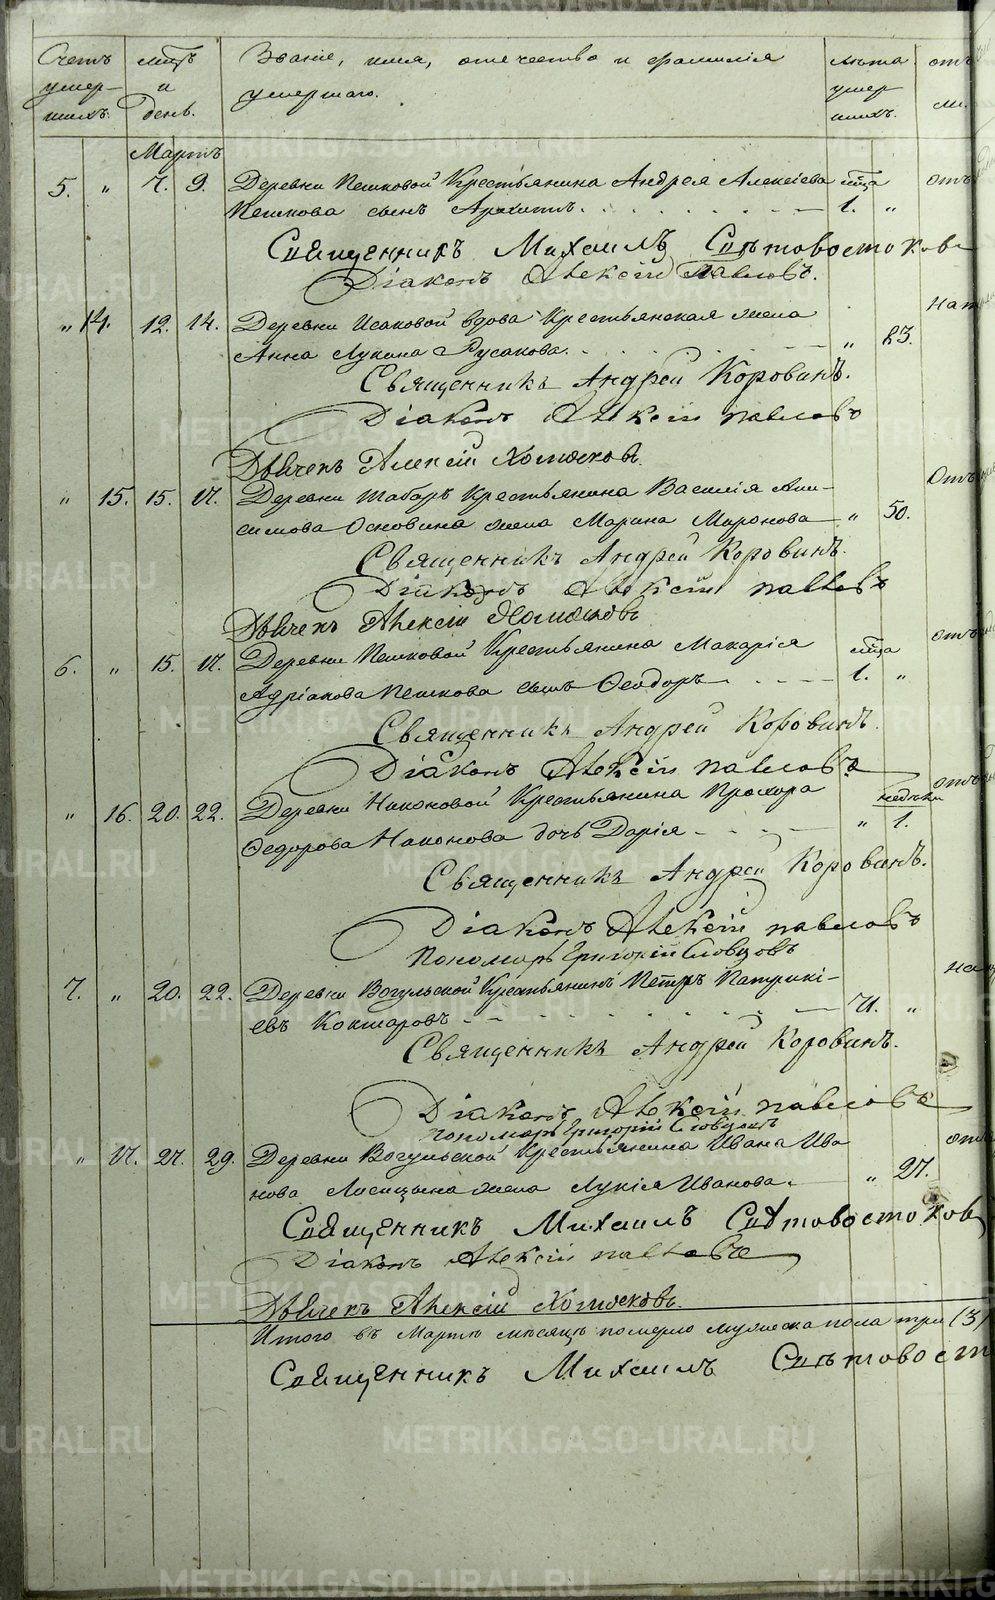 Счетъ умер- шихъ.
мѣсяцъ и день.
Званіе, имя, отечество и фамилія
умершаго.
лѣта умер шихъ.
отъ
Мартъ
5. " 7. 9. Деревни Пешковой Крестьянина Андрея Алексіева мѣсца
Пешкова сынъ Архипъ. 1. "
Священникъ Михаилъ Свѣтовостоковъ
Діаконъ Алексій Павловъ.
" 14. 12. 14. Деревни Исаковой вдова Крестьянская жена
Анна Лукина Русакова. " 83.
Священникъ Андрей Коровинъ.
Діаконъ Алексій Павловъ
Дьячекъ Алексій Хомяковъ.
" 15. 15. 17. Деревни Таборъ Крестьянина Василія Ани-
симова Основина жена Марина Миронова " 50.
Священникъ Андрей Коровинъ.
Діаконъ Алексій Павловъ
Дьячекъ Алексій Хомяковъ
6. " 15. 17. Деревни Пешковой Крестьянина Макарія мѣсца
Адріанова Пешкова сынъ Ѳеодоръ 1. "
Священникъ Андрей Коровинъ.
Діаконъ Алексій Павловъ
" 16. 20. 22. Деревни Никоновой Крестьянина Прохора недѣли
Ѳедорова Никонова дочь Дарія " 1.
Священникъ Андрей Коровинъ.
Діаконъ Алексій Павловъ
Пономарь Григорій Словцовъ
7. " 20. 22. Деревни Вогульской Крестьянинъ Петръ Патрикі-
евъ Кокшаровъ 71. "
Священникъ Андрей Коровинъ.
Діаконъ Алексій Павловъ
Пономарь Григорій Словцовъ
" 17. 27. 29. Деревни Вогульской Крестьянина Ивана Ива
нова Лисицына жена Лукія Иванова. " 27.
Священникъ Михаилъ Свѣтовостоковъ
Діаконъ Алексій Павловъ
Дьячекъ Алексій Хомяковъ.
Итого въ Мартѣ мѣсяцѣ померло мужеска пола три (3)
Священникъ Михаилъ Свѣтовост
METRIKI.GASO-URAL.RU